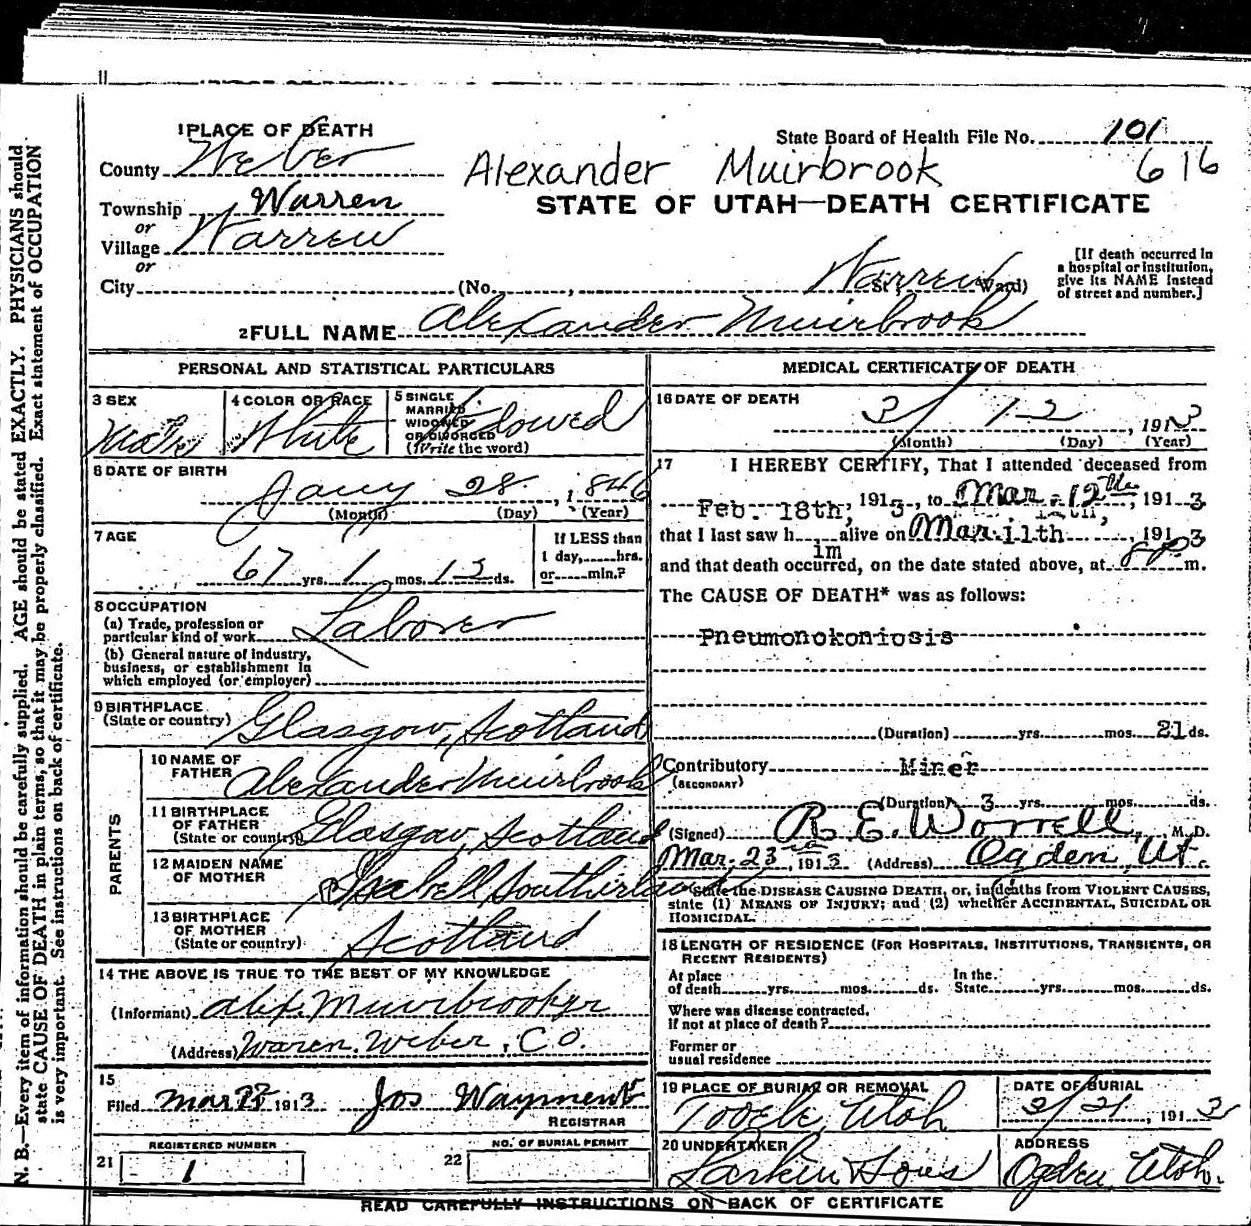 1 PLACE OF DEATH
State Board of Health File No. 101
County Weber
Alexander Muirbrook 616
Township Warren
STATE OF UTAH—DEATH CERTIFICATE
or
Village Warren
or
City (No. , Warren St. Ward)
[If death occurred in
a hospital or institution,
give its NAME instead
of street and number.]
2 FULL NAME Alexander Muirbrook
PERSONAL AND STATISTICAL PARTICULARS
3 SEX Male
4 COLOR OR RACE White
5 SINGLE
MARRIED
WIDOWED
OR DIVORCED
(Write the word) Widowed
6 DATE OF BIRTH
Jany 28, 1846
(Month) (Day) (Year)
7 AGE
67 yrs. 1 mos. 13 ds.
If LESS than
1 day, hrs.
or min.?
8 OCCUPATION
(a) Trade, profession or
particular kind of work Laborer
(b) General nature of industry,
business, or establishment in
which employed (or employer)
9 BIRTHPLACE
(State or country) Glasgow, Scotland
PARENTS
10 NAME OF
FATHER Alexander Muirbrook
11 BIRTHPLACE
OF FATHER
(State or country) Glasgow, Scotland
12 MAIDEN NAME
OF MOTHER Isabell Southerland
13 BIRTHPLACE
OF MOTHER
(State or country) Scotland
14 THE ABOVE IS TRUE TO THE BEST OF MY KNOWLEDGE
(Informant) Alex. Muirbrook jr
(Address) Waren. Weber. CO.
15
Filed Mar 1913 Jos Wayment
REGISTRAR
REGISTERED NUMBER
21 1
NO. OF BURIAL PERMIT
22
MEDICAL CERTIFICATE OF DEATH
16 DATE OF DEATH
3 / 12, 1913
(Month) (Day) (Year)
17 I HEREBY CERTIFY, That I attended deceased from
Feb. 18th, 1913, to Mar. 12th, 1913
that I last saw him alive on Mar. 11th, 1913
and that death occurred, on the date stated above, at 8 P. m.
The CAUSE OF DEATH* was as follows:
Pneumonokoniosis
(Duration) yrs. mos. 21 ds.
Contributory Miner
(SECONDARY)
(Duration) 3 yrs. mos. ds.
(Signed) R. E. Worrell, M. D.
Mar. 23, 1913 (Address) Ogden, Ut.
*State the DISEASE CAUSING DEATH, or, in deaths from VIOLENT CAUSES,
state (1) MEANS OF INJURY; and (2) whether ACCIDENTAL, SUICIDAL OR
HOMICIDAL.
18 LENGTH OF RESIDENCE (FOR HOSPITALS, INSTITUTIONS, TRANSIENTS, OR
RECENT RESIDENTS)
At place In the
of death yrs. mos. ds. State yrs. mos. ds.
Where was disease contracted,
if not at place of death?
Former or
usual residence
19 PLACE OF BURIAL OR REMOVAL
Tooele, Utah
DATE OF BURIAL
3/21, 1913
20 UNDERTAKER
Larkin Sons
ADDRESS
Ogden Utah.
READ CAREFULLY INSTRUCTIONS ON BACK OF CERTIFICATE
N. B.—Every item of information should be carefully supplied. AGE should be stated EXACTLY. PHYSICIANS should
state CAUSE OF DEATH in plain terms, so that it may be properly classified. Exact statement of OCCUPATION
is very important. See instructions on back of certificate.